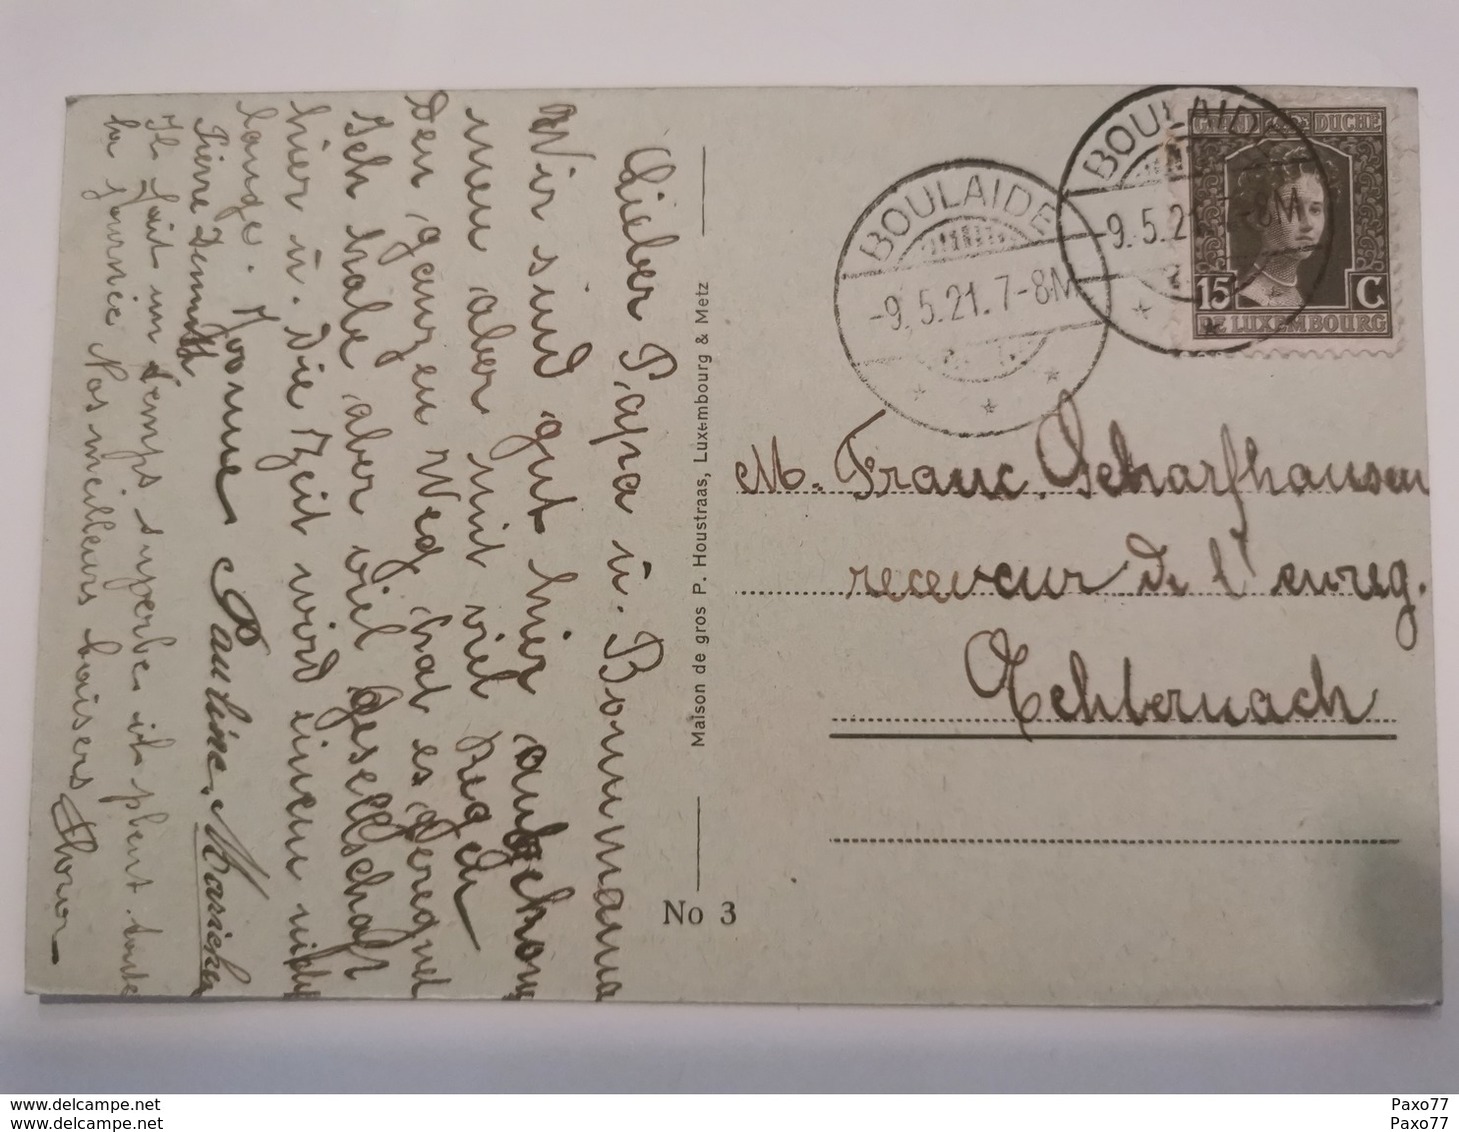 Lieber Papa ü. Bonnmama
Wir sind gut hier angekom
men aber mit viel Regen
Den ganzen Weg hat es geregnet
Ich habe aber viel Gesellschaft
hier ü. die Zeit wird einem nicht
lange. Yvonne Pauline. Mariechen
Pierre
Il fait un temps superbe, il pleut toute
la journée Nos meilleurs baisers
Maison de gros P. Houstraas, Luxembourg & Metz
No 3
BOULAIDE
-9.5.21.7-8M
BOULAIDE
-9.5.21.7-8M
GRAND DUCHE
15 C
DE LUXEMBOURG
M. Franc. Scharfhausen
receveur de l'enreg.
Echternach
www.delcampe.net
www.delcampe.net
Paxo77
Paxo77